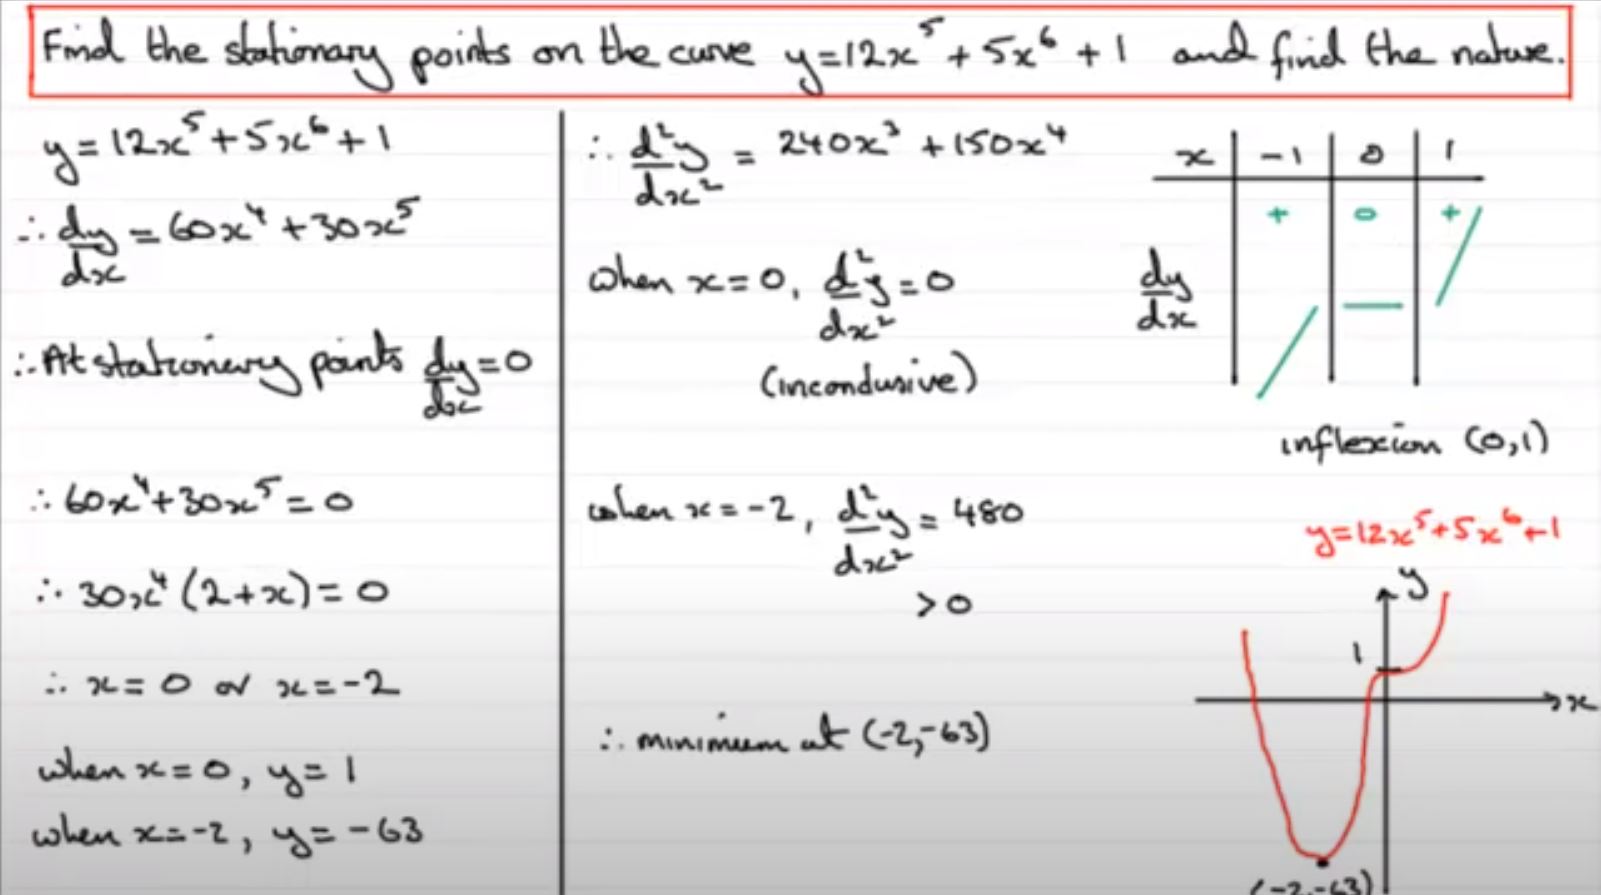 Find the stationary points on the curve y=12x⁵+5x⁶+1 and find the nature.
y=12x⁵+5x⁶+1
∴ dy/dx = 60x⁴+30x⁵
∴ At stationary points dy/dx=0
∴ 60x⁴+30x⁵=0
∴ 30x⁴(2+x)=0
∴ x=0 or x=-2
when x=0, y=1
when x=-2, y=-63
∴ d²y/dx² = 240x³+150x⁴
when x=0, d²y/dx²=0
(inconclusive)
when x=-2, d²y/dx²=480
>0
∴ minimum at (-2,-63)
x -1 0 1
+ 0 +
dy/dx
inflexion (0,1)
y=12x⁵+5x⁶+1
y
1
x
(-2,-63)